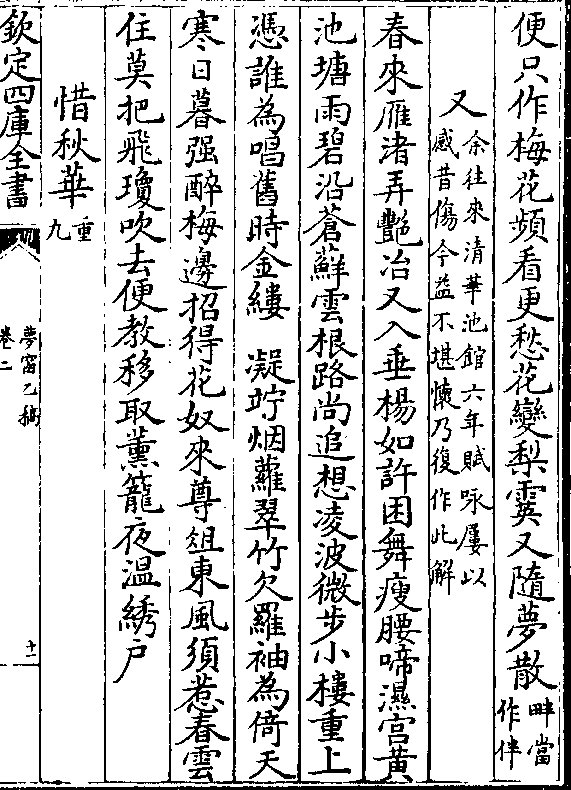 便只作梅花頻看更愁花變梨霙又隨夢散畔當作伴
又余往來清華池館六年賦咏屢以感昔傷今益不堪懷乃復作此解
春來雁渚弄艷冶又入垂楊如許困舞瘦腰啼濕宫黄
池塘雨碧沿蒼蘚雲根路尚追想凌波微步小樓重上
憑誰為唱舊時金縷　凝竚烟蘿翠竹欠羅袖為倚天
寒日暮强醉梅邊招得花奴來尊俎東風須惹春雲
住莫把飛瓊吹去便教移取薰籠夜温綉户
惜秋華重九
欽定四庫全書
夢窗乙稿
卷二
十一